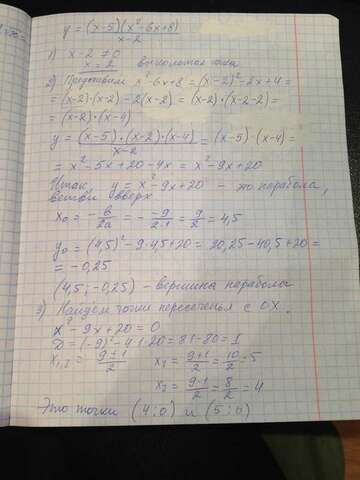 y = (x-5)(x²-6x+8) / x-2
1) x-2 ≠ 0
x = 2 выколотая точка
2) Представим x²-6x+8 = (x-2)²-2x+4 =
= (x-2)·(x-2)-2(x-2) = (x-2)·(x-2-2) =
= (x-2)·(x-4)
y = (x-5)·(x-2)·(x-4) / x-2 = (x-5)·(x-4) =
= x²-5x+20-4x = x²-9x+20
Итак, y = x²-9x+20 - это парабола,
ветви вверх
x₀ = -b/2a = - -9/2·1 = 9/2 = 4,5
y₀ = (4,5)²-9·4,5+20 = 20,25-40,5+20 =
= -0,25
(4,5; -0,25) - вершина параболы
3) Найдём точки пересеченья с OX.
x²-9x+20=0
D = (-9)²-4·1·20 = 81-80 = 1
x₁,₂ = 9±1 / 2 x₁ = 9+1 / 2 = 10/2 = 5
x₂ = 9-1 / 2 = 8/2 = 4
Это точки (4;0) и (5;0)